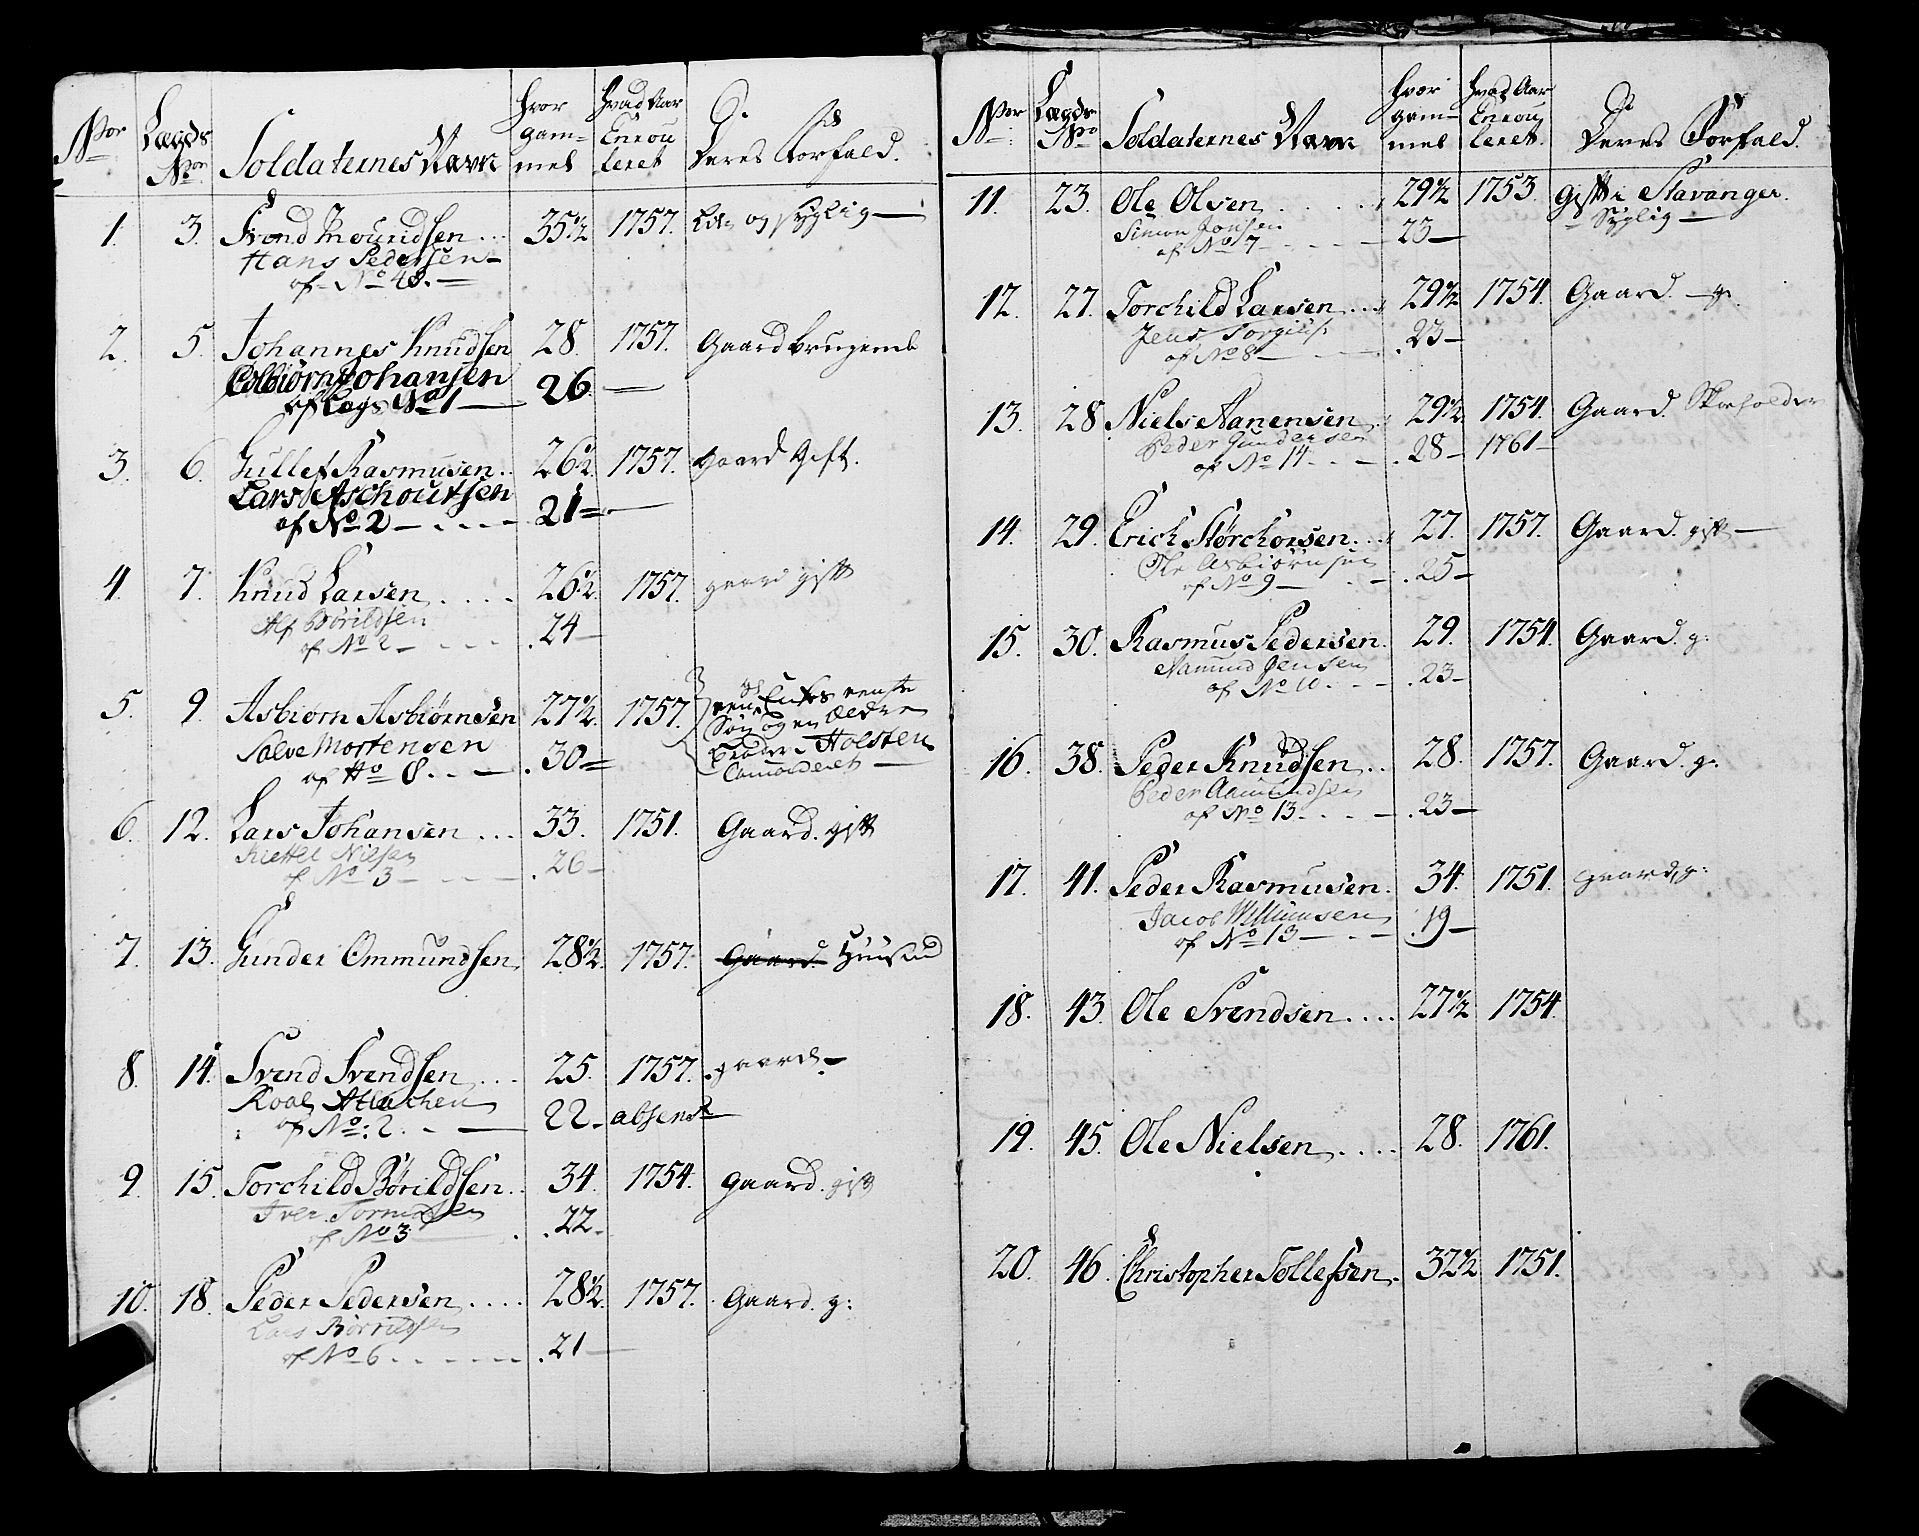 Nor Lægds Nor Soldaternes Navn hvor gam- mel hvad Aar Enrou leret Deres Forfald.
1. 3. Svend 35½ 1757. og syglig
Hans Pedersen
af No 48.
2. 5. Johannes Knudsen 28. 1757. Gaard brugende
Esbiørn Johansen 26.
af Lægs No 1
3. 6. Gullef Rasmusen 26½ 1757. Gaard Gift.
Lars Aschoutsen 21
of No 2
4. 7. Knud Larsen 26½ 1757. gaard gift
Alf Börildsen 24
of No 2
5. 9. Asbiørn Asbiørnsen 27½ 1757. een Enkes eneste
Søn og en Ældre
Salve Mortensen 30 Broder i Holsten
of No 8. Comanderet
6. 12. Lars Johansen 33. 1751. Gaard. gift
Kiettel Nielsen 26
of No 3
7. 13. Gunder Ommundsen 28½ 1757. Gaard
8. 14. Svend Svendsen 25. 1757. gaard
Roal 22 absent
of No: 2.
9. 15. Torchild Börildsen 34. 1754. Gaard. gift
Iver 22
of No 3
10. 18. Peder Pedersen 28½ 1757. Gaard. g:
Lars Börrildsen 21
of No 6
Nor Lægds No Soldaternes Navn hvor gam- mel hvad Aar Enrou leret. Deres Forfald.
11. 23. Ole Olsen 29½ 1753. gift i Stavanger.
Simon Jonsen 23 Syglig
af No 7
12. 27. Torchild Larsen 29½ 1754. Gaard. g.
Jens Torgilss 23
of No 8
13. 28 Niels Aanensen 29½ 1754. Gaard.
Peder Gundersen 28 1761
of No 14
14. 29. Erich Størchorsen 27. 1757. Gaard. gift
Ole Asbiörnsen 25
of No 9
15. 30. Rasmus Pedersen. 29. 1754. Gaard. g:
Aamund Jensen 23
of No 10.
16. 38. Peder Knudsen 28. 1757. Gaard. g:
Peder Aamundsen 23
of No 13
17. 41. Peder Rasmusen. 34. 1751. gaard, g:
Jacob Willumsen 19
of No 13
18. 43. Ole Svendsen 27½ 1754.
19. 45. Ole Nielsen 28. 1761.
20. 46. Christopher Tollefsen. 32½ 1751.